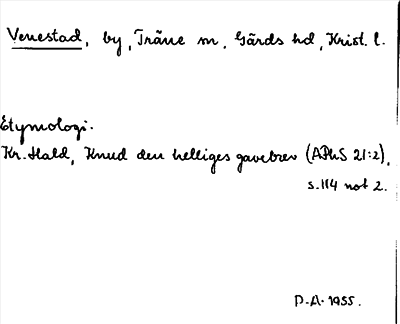 Venestad, by, Träne sn, Gärds hd, Krist. l.
Etymologi.
Kr. Hald, Knud den helliges gavebrev (APhS 21:2),
s. 114 not 2.
D.A. 1955.